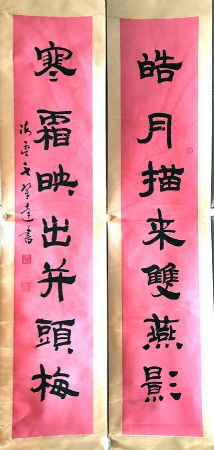 皓月描来雙燕影
寒霜映出并頭梅